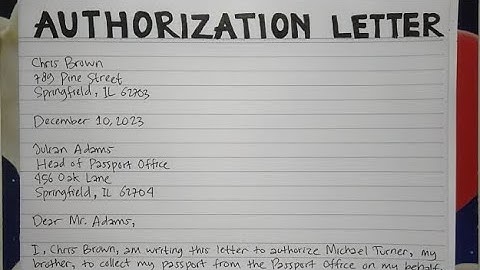 AUTHORIZATION LETTER
Chris Brown
789 Pine Street
Springfield, IL 62703
December 10, 2023
Julian Adams
Head of Passport Office
456 Oak Lane
Springfield, IL 62704
Dear Mr. Adams,
I, Chris Brown, am writing this letter to authorize Michael Turner, my
brother, to collect my passport from the Passport Office on my behalf.